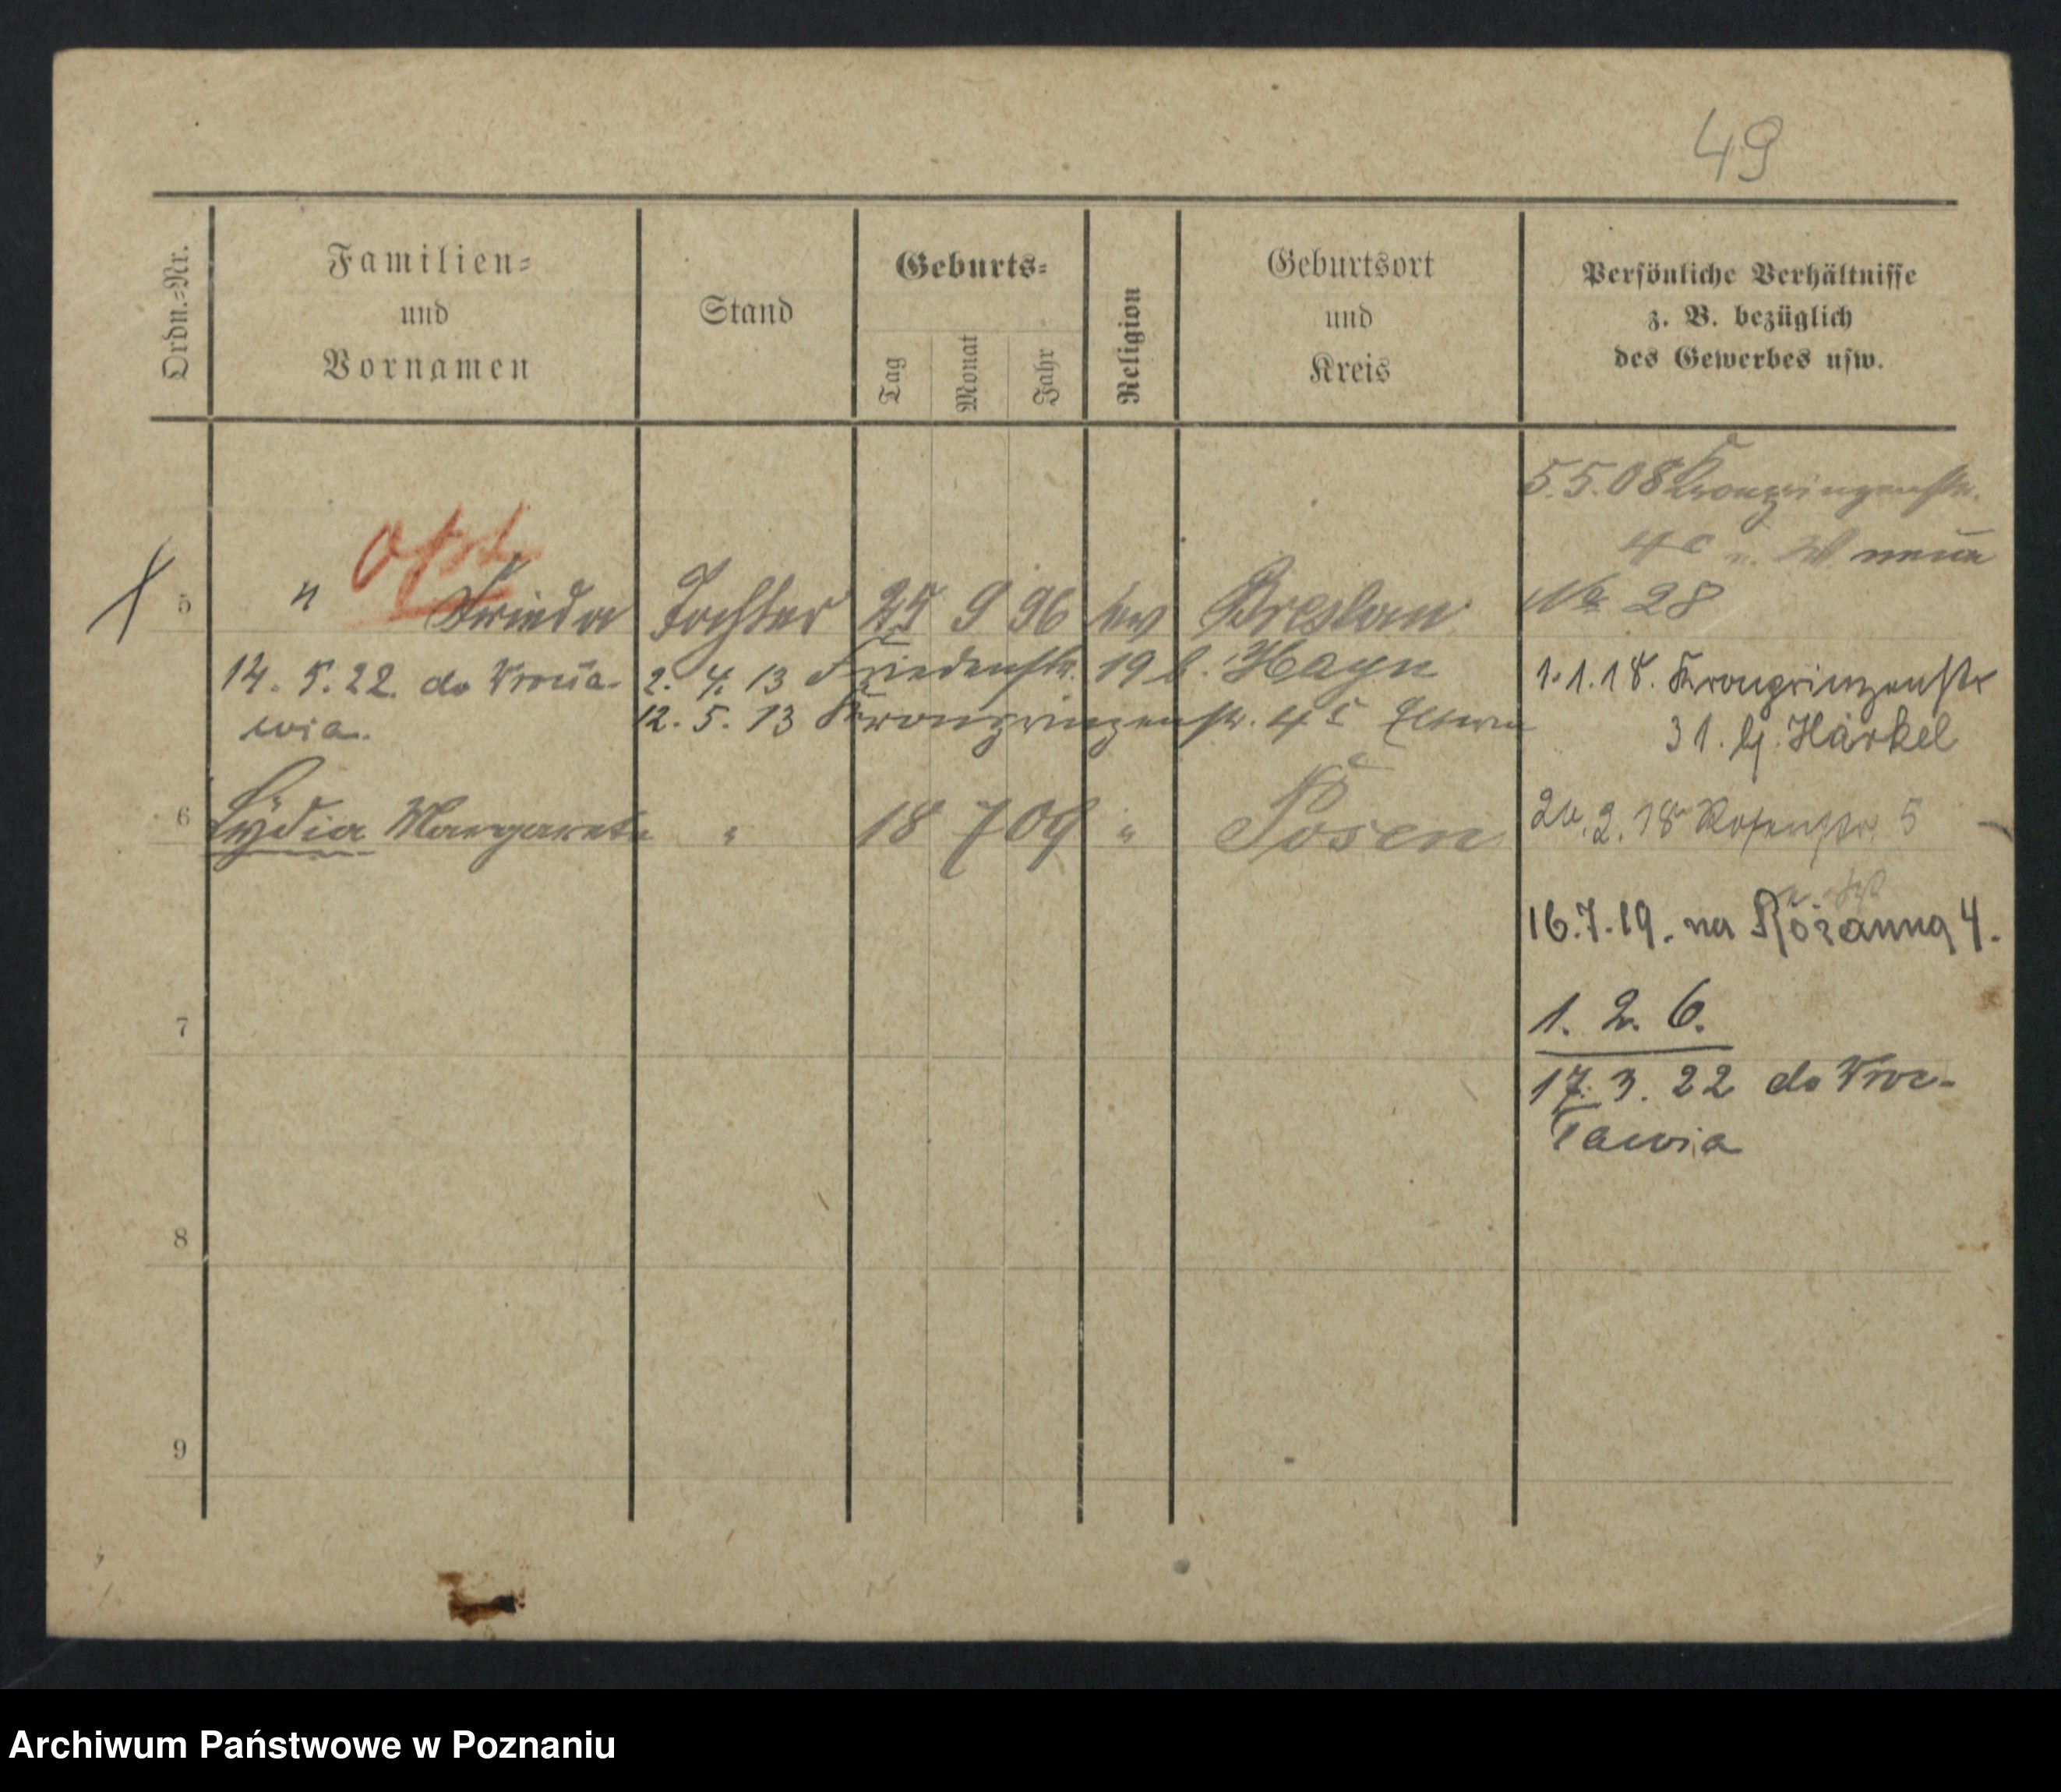 49
Ordn.-Nr.
Familien-
und
Vornamen
Stand
Geburts-
Tag
Monat
Jahr
Religion
Geburtsort
und
Kreis
Persönliche Verhältnisse
z. B. bezüglich
des Gewerbes usw.
5.5.08 Kronprinzenstr.
4c neue
No 28
opt
5 " Frieda Tochter 25 9 96 ev Breslau
14. 5. 22 do Wrocła-
wia.
2. 4. 13 Friedenstr. 19 b. Hayn
12. 5. 13 Kronprinzenstr. 4c Eltern
1.1.18. Kronprinzenstr
31. bj. Härkel
6 Lydia Margarete " 18 7 09 " Posen
2.18 Rosenstr. 5
16.7.19. na Różanną 4.
1. 2. 6.
17. 3. 22 do Wroc-
ławia
7
8
9
Archiwum Państwowe w Poznaniu